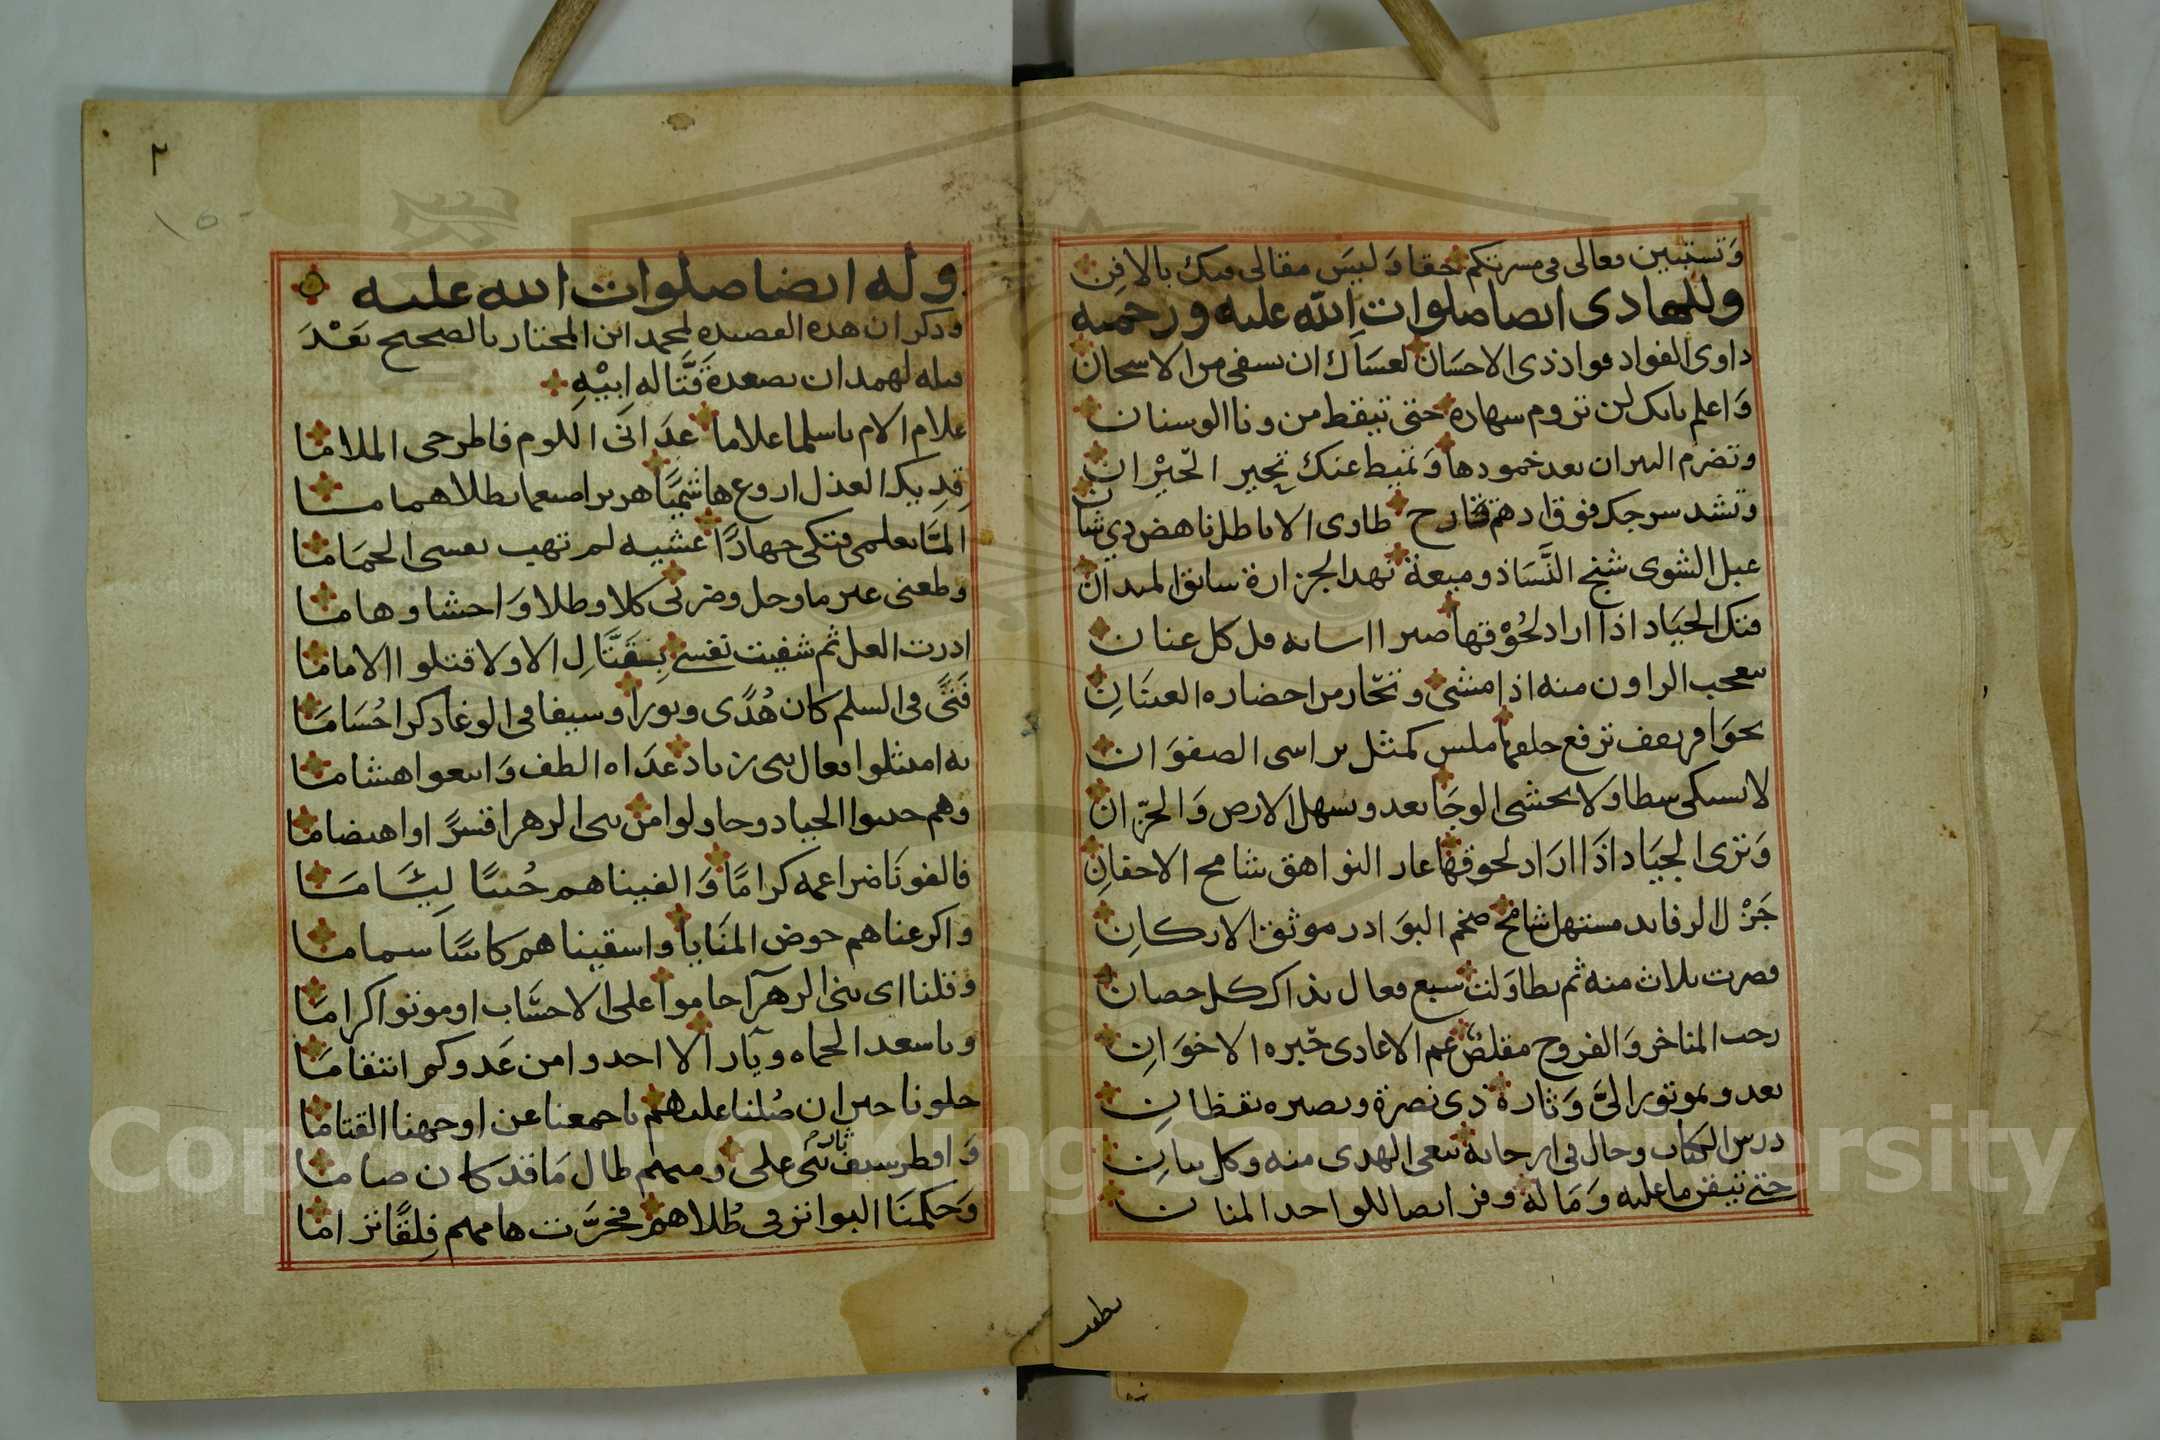 وتستبين فعالى فى مسرتكم حقا وليس مقالى فيك بالافن
وللهادى ايضا صلوات الله عليه ورحمته
داوى الفواد فواد ذى الاحسان لعساك ان يسفى من الاسحان
وَاعلم بانك لن تروم سهاده حتى تيقظ من ونا الوسنان
وتضرم النيران بعد خمودها وَتميط عنك تحير الحَيْران
وتشد سرجك فوق ادهم قارح طاوى الاباطل ناهض ذي شان
عبل الشوى شنج النَّسَا ذو ميعة نهد الجزارة سابق الميدان
فتك الجياد اذا اراد لحُوْقها صبرا
يتعجب الراون منه اذا مشى وتحار من احضاره العينان
بحوَافر تقف ترفع حلقها ملس كمثل براسى الصفوَان
لا يستكى سطا ولا يحشى الوجَا يعدو بسهل الارض وَالحزان
وَترى الجيَاد اذَا ارَاد لحوقها عار النواهق شامح الاحقان
جَزْل الرفايد مستهل شامخ صخم البوَادر موثق الاركانِ
قصرت ثلاث منه ثم تطاوَلت سبع فعال بذاك كل حصان
رحب المناخر وَالفروج مقلص غم الاعادى خيره الاخوَانِ
يعدو بموتور الىَّ وَثاره ذى نصرة وبصيره يقظان
درس الكتاب وحال فى ارجائه يبغى الهدى منه وكل بيانِ
حتى تيقن ما عليه وَمَا له وقرا ايصا للواحد المنان
٢
وله ايضا صلوات الله عليه
وذكر ان هذه القصيده لمحمد ابن المختار بالصحيح بَعْدَ
قتله لهمدان بصعدة قَتَّاله اَبِيْهِ
علام الام ياسلما علاما عدانى اللوم فاطرحى الملاما
قدِيكِ العذل اروع هاشميًا هزبرا صيغما بطلا هماما
المّا تعلمى فتكى جهارًا عشيه لم تهب نفسى الحمَاما
وطعنى غير ما وجل وضربى كلا وطلا وَاحشا وهاما
ادرت العل ثم شفيت نفسى بِقَتَّالِ الاولا قتلوا الاماما
فَتىً فى السلم كان هُدًى ونورا وسيفا فى الوغا ذكرا حُسَامَا
به امتثلوا فعال بنى زياد غدَاه الطف وَاتبعوا هشاما
وهم جنبوا الجياد وحاولوا من بنى الزهرا قسرً اواهتضاما
فالفونَا ضراغمه كرامًا وَالفيناهم خُبثًا لِيئَامَا
واكرعناهم حوض المنَايا واسقيناهم كاسًا سماما
وَقلنا اى بنى الزهرآ حاموا على الاحسَاب او موتوا كراما
ويا سعد الحماه ويآر الا احدوا من عَدوكم انتقامَا
جلونا حين ان صُلنا عليهم باجمعنا عن اوجهنا القتاما
وَافطر سيف ثَار بنى على ومنهم طال مَا قد كان صاما
وَحكمنَا البواتر فى طُلاهم فخرَّت هامهم فِلقًا تراما